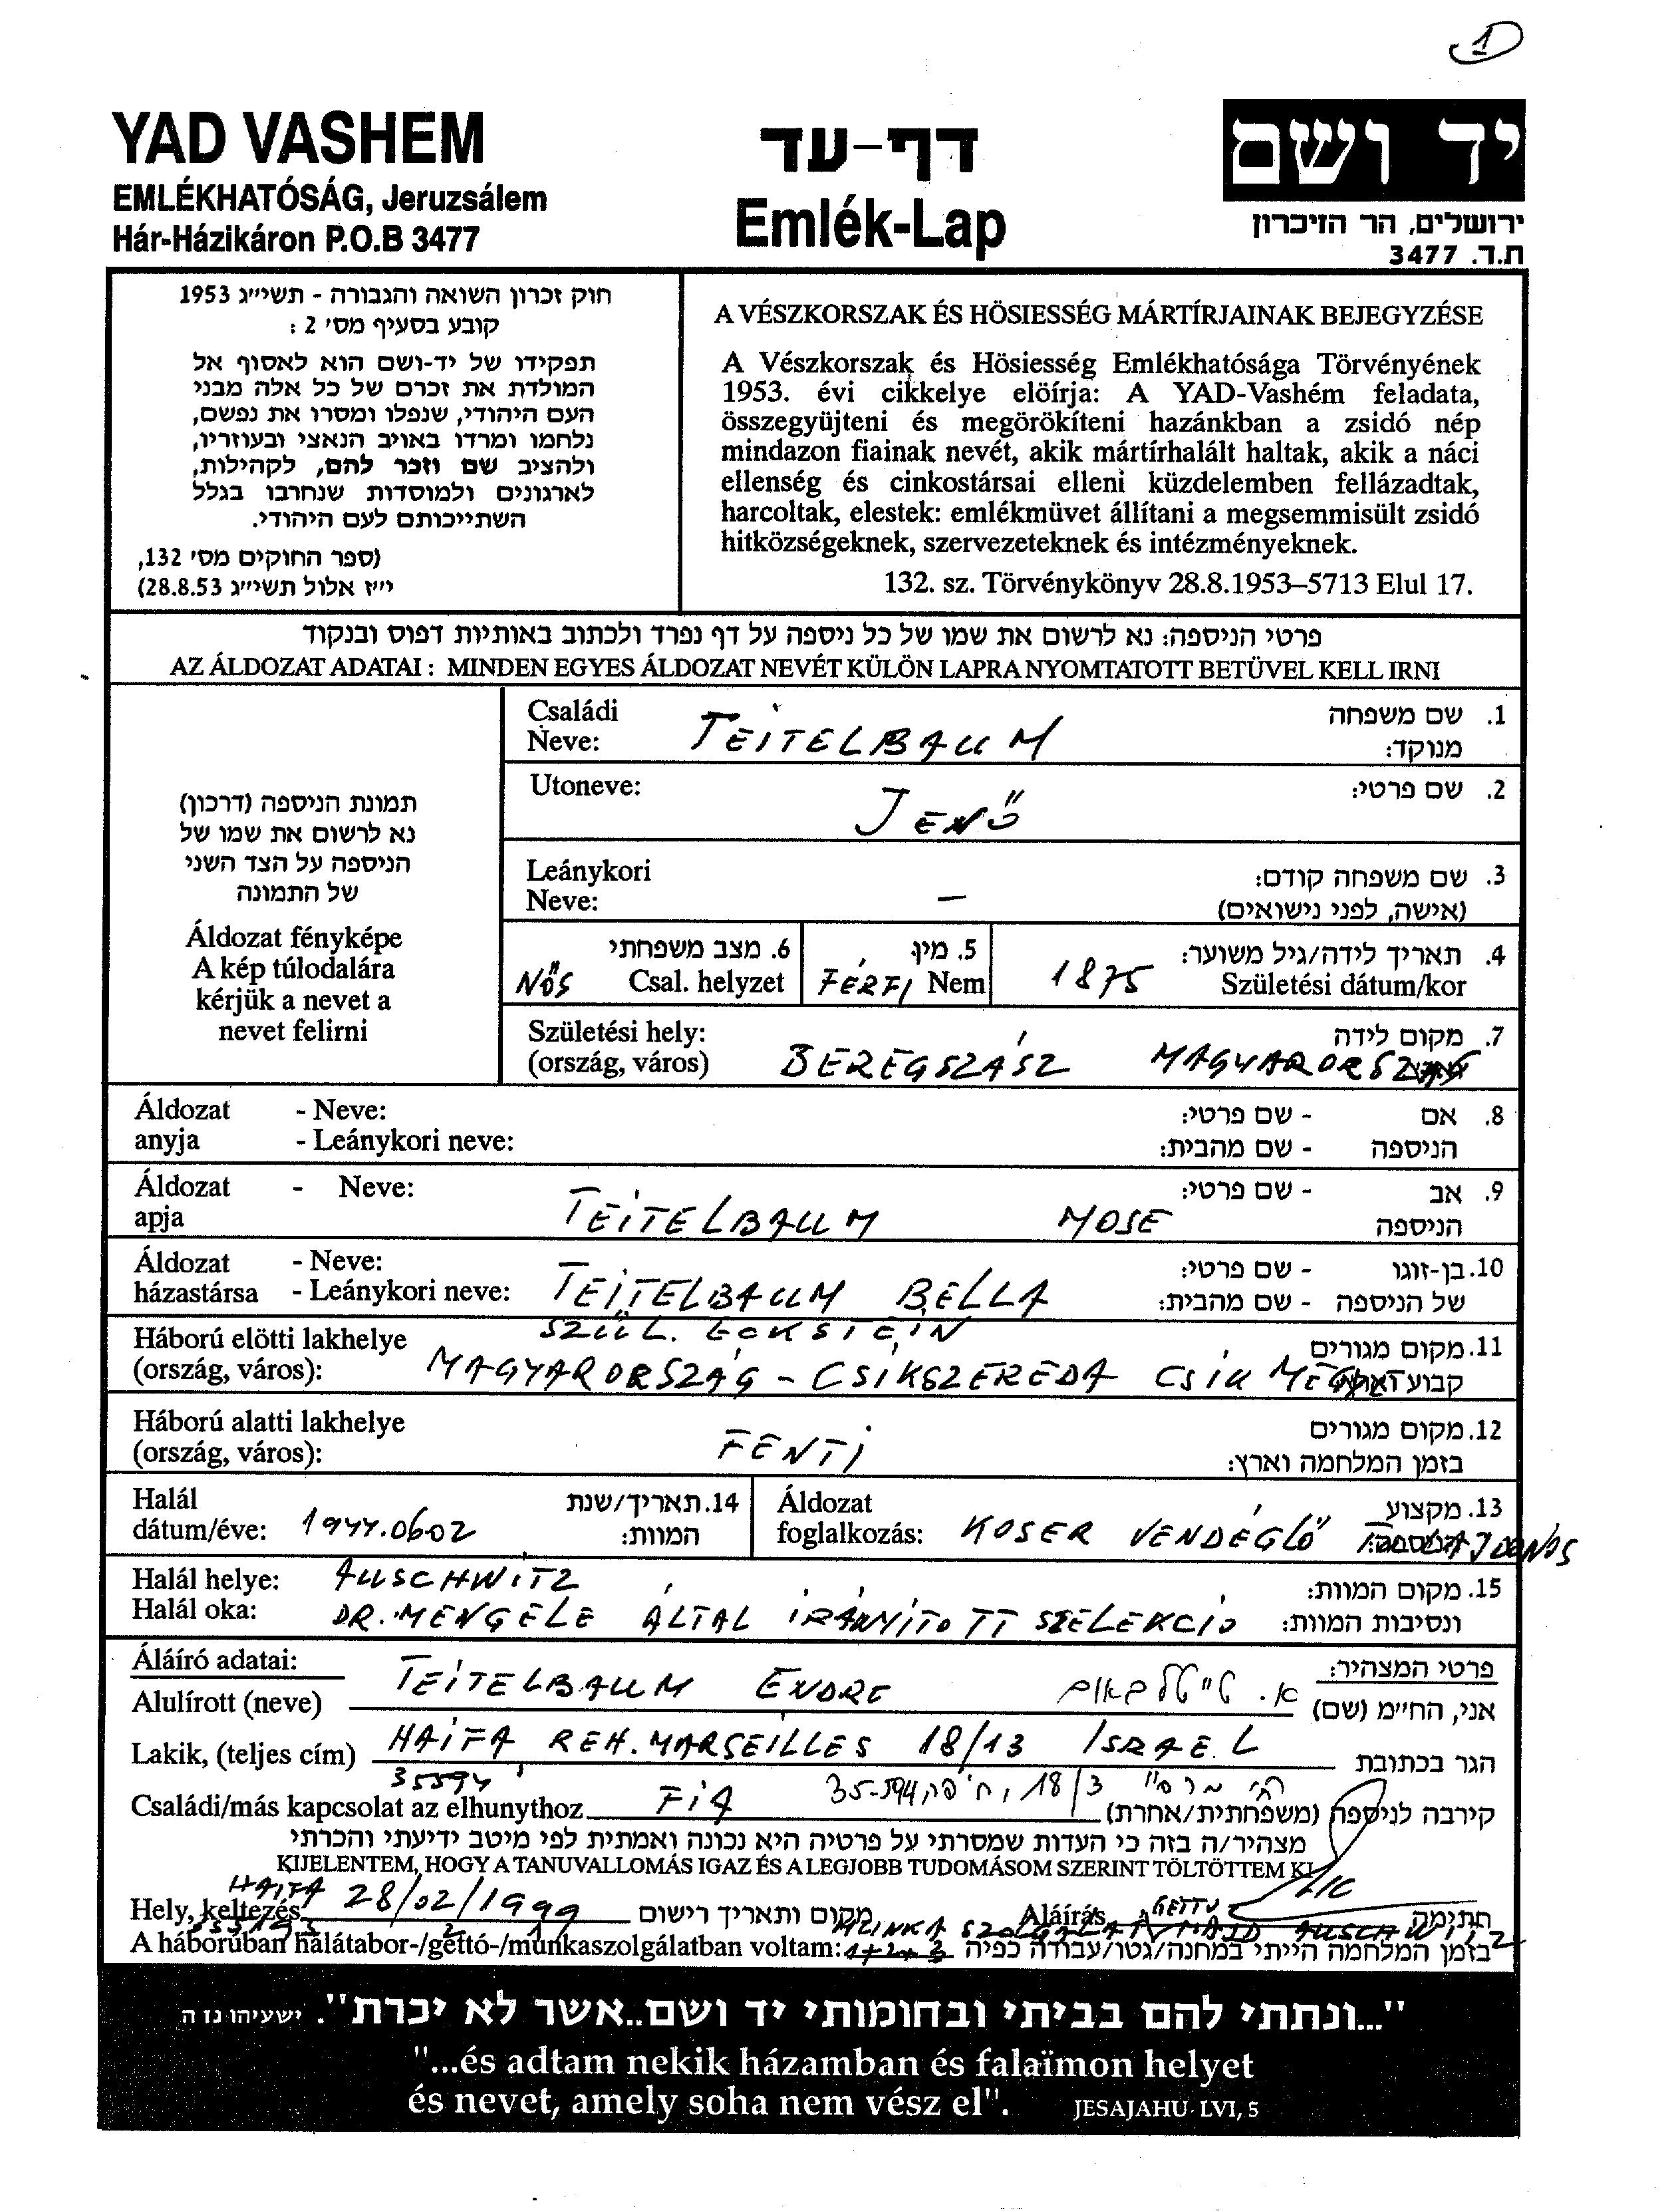 1
YAD VASHEM
EMLÉKHATÓSÁG, Jeruzsálem
Hár-Házikáron P.O.B 3477
דף-עד
Emlék-Lap
יד ושם
ירושלים, הר הזיכרון
ת.ד. 3477
חוק זכרון השואה והגבורה - תשי״ג 1953
קובע בסעיף מס׳ 2 :
תפקידו של יד-ושם הוא לאסוף אל
המולדת את זכרם של כל אלה מבני
העם היהודי, שנפלו ומסרו את נפשם,
נלחמו ומרדו באויב הנאצי ובעוזריו,
ולהציב שם וזכר להם, לקהילות,
לארגונים ולמוסדות שנחרבו בגלל
השתייכותם לעם היהודי.
(ספר החוקים מס׳ 132,
י״ז אלול תשי״ג 28.8.53)
A VÉSZKORSZAK ÉS HÖSIESSÉG MÁRTÍRJAINAK BEJEGYZÉSE
A Vészkorszak és Hösiesség Emlékhatósága Törvényének
1953. évi cikkelye elöírja: A YAD-Vashém feladata,
összegyüjteni és megörökíteni hazánkban a zsidó nép
mindazon fiainak nevét, akik mártírhalált haltak, akik a náci
ellenség és cinkostársai elleni küzdelemben fellázadtak,
harcoltak, elestek: emlékmüvet állítani a megsemmisült zsidó
hitközségeknek, szervezeteknek és intézményeknek.
132. sz. Törvénykönyv 28.8.1953–5713 Elul 17.
פרטי הניספה: נא לרשום את שמו של כל ניספה על דף נפרד ולכתוב באותיות דפוס ובנקוד
AZ ÁLDOZAT ADATAI : MINDEN EGYES ÁLDOZAT NEVÉT KÜLÖN LAPRA NYOMTATOTT BETÜVEL KELL IRNI
תמונת הניספה (דרכון)
נא לרשום את שמו של
הניספה על הצד השני
של התמונה
Áldozat fényképe
A kép túlodalára
kérjük a nevet a
nevet felirni
Családi
Neve: TEITELBAUM
1. שם משפחה
מנוקד:
Utoneve: JENŐ 2. שם פרטי:
Leánykori
Neve: –
3. שם משפחה קודם:
(אישה, לפני נישואים)
6. מצב משפחתי
NŐS Csal. helyzet
5. מין.
FÉRFI Nem
4. תאריך לידה/גיל משוער:
1875 Születési dátum/kor
Születési hely:
(ország, város) BEREGSZÁSZ MAGYARORSZÁG
7. מקום לידה
Áldozat - Neve:
anyja - Leánykori neve:
8. אם - שם פרטי:
הניספה - שם מהבית:
Áldozat - Neve:
apja TEITELBAUM MOSE
9. אב - שם פרטי:
הניספה
Áldozat - Neve:
házastársa - Leánykori neve: TEITELBAUM BELLA
10. בן-זוגו - שם פרטי:
של הניספה - שם מהבית:
SZÜL. ECKSTEIN
Háború elötti lakhelye
(ország, város): MAGYARORSZÁG – CSIKSZEREDA CSIK MEGYE
11. מקום מגורים
Háború alatti lakhelye
(ország, város): FENTI
12. מקום מגורים
בזמן המלחמה וארץ:
Halál
dátum/éve: 1944.0602
14. תאריך/שנת
המוות:
Áldozat
foglalkozás: KOSER VENDÉGLŐ TULAJDONOS
13. מקצוע
Halál helye: AUSCHWITZ
Halál oka: DR. MENGELE ÁLTAL IRÁNYITOTT SZELEKCIÓ
15. מקום המוות:
ונסיבות המוות:
Áláíró adatai: פרטי המצהיר:
Alulírott (neve) TEITELBAUM ENDRE א. טייטלבאום אני, הח״מ (שם)
Lakik, (teljes cím) HAIFA REH. MARSEILLES 18/13 ISRAEL הגר בכתובת
35594
Családi/más kapcsolat az elhunythoz FIA קירבה לניספה (משפחתית/אחרת)
מצהיר/ה בזה כי העדות שמסרתי על פרטיה היא נכונה ואמתית לפי מיטב ידיעתי והכרתי
KIJELENTEM, HOGY A TANUVALLOMÁS IGAZ ÉS A LEGJOBB TUDOMÁSOM SZERINT TÖLTÖTTEM KI
Hely, keltezés HAIFA 28/02/1999 מקום ותאריך רישום Aláírás חתימה
MUNKA SZOLGÁLAT MAJD AUSCHWITZ
A háborúban halátabor-/gettó-/munkaszolgálatban voltam: בזמן המלחמה הייתי במחנה/גטו/עבודת כפיה
"...ונתתי להם בביתי ובחומותי יד ושם..אשר לא יכרת". ישעיהו נז ה
"...és adtam nekik házamban és falaïmon helyet
és nevet, amely soha nem vész el". JESAJAHU- LVI, 5